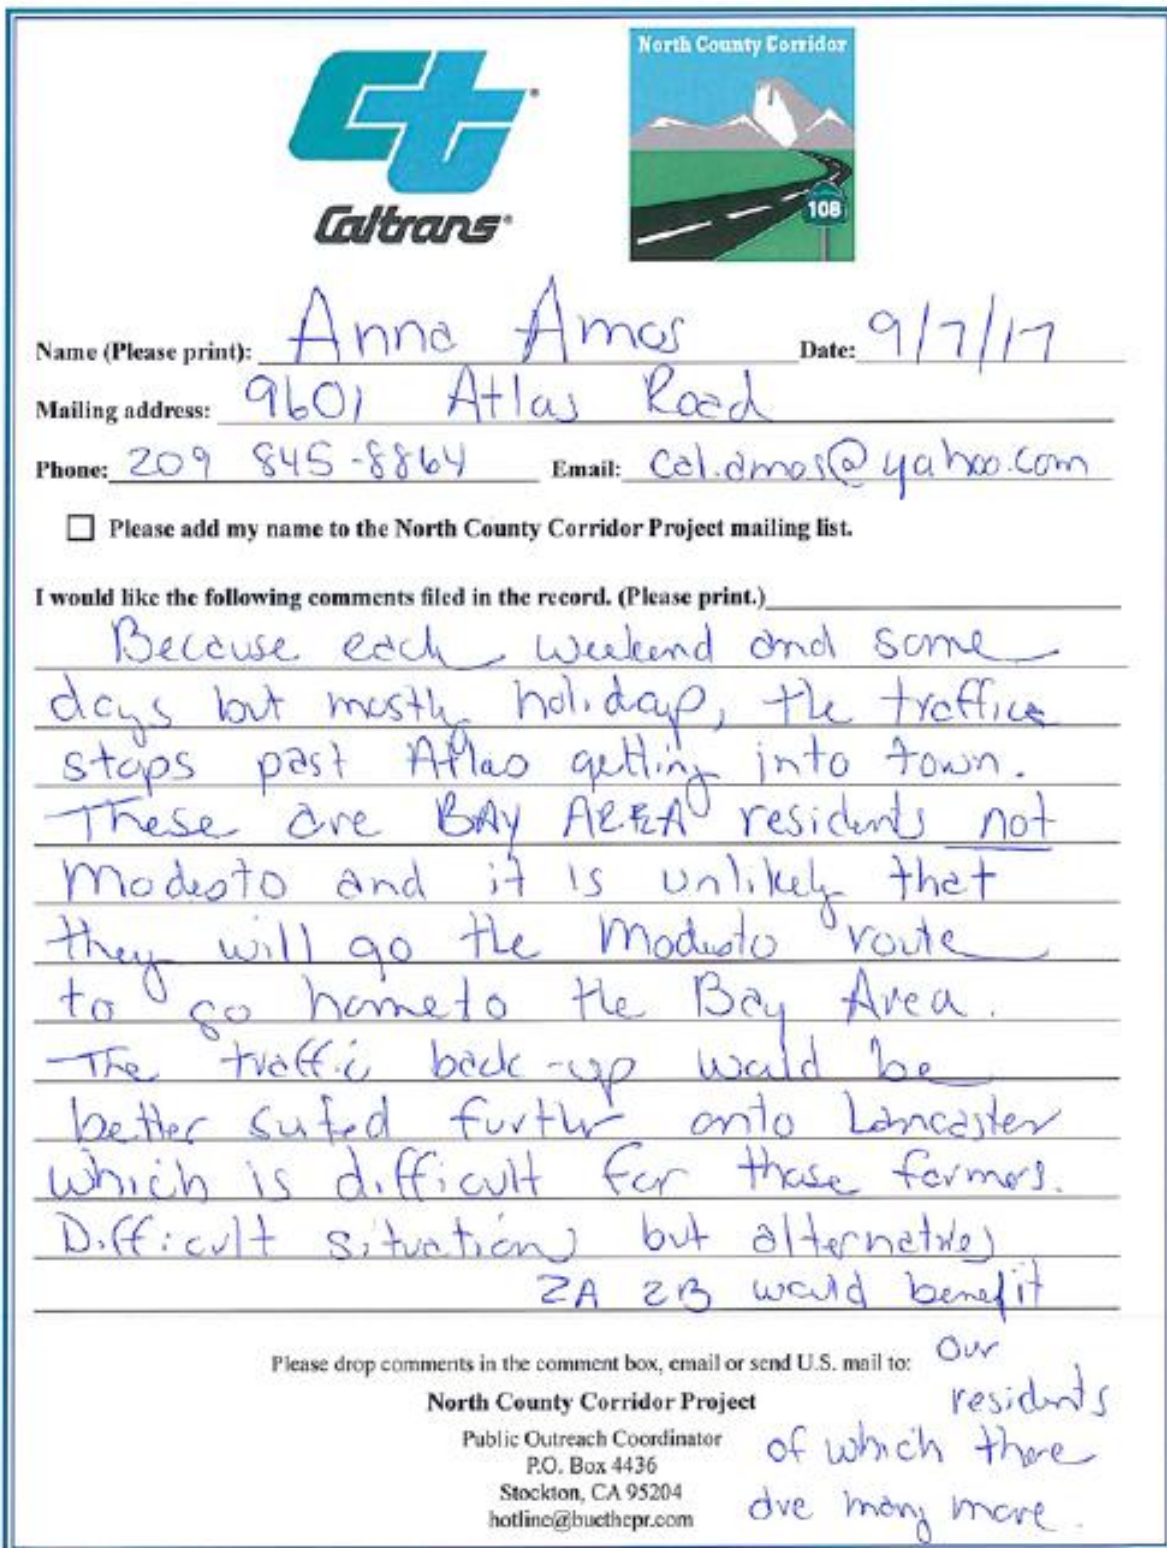 North County Corridor
Ct
Caltrans
108
Name (Please print): Anna Amos Date: 9/7/17
Mailing address: 9601 Atlas Road
Phone: 209 845-8864 Email: cal.amos@yahoo.com
☐ Please add my name to the North County Corridor Project mailing list.
I would like the following comments filed in the record. (Please print.)
Because each weekend and some
days but mostly holidays, the traffice
stops past Atlas getting into town.
These are BAY AREA residents not
Modesto and it is unlikely that
they will go the Modesto route
to go home to the Bay Area.
The traffic back-up would be
better suited further onto Lancaster
which is difficult for those farmers.
Difficult situation, but alternatives
2A 2B would benefit
our
residents
of which there
are many more.
Please drop comments in the comment box, email or send U.S. mail to:
North County Corridor Project
Public Outreach Coordinator
P.O. Box 4436
Stockton, CA 95204
hotline@buethepr.com